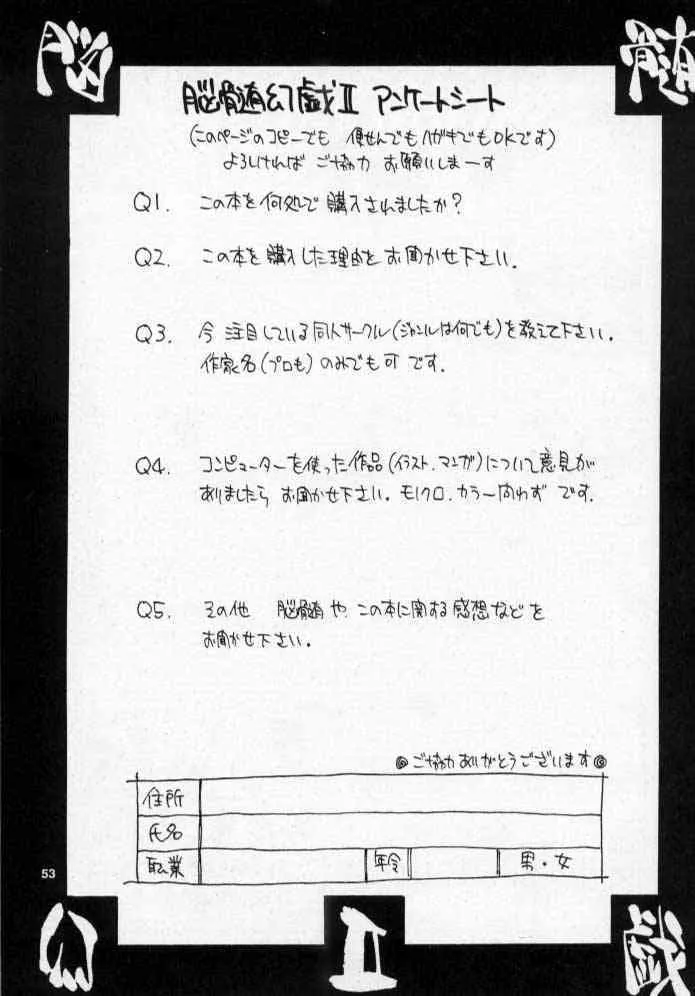 脳 髄
脳髄幻戯Ⅱ アンケートシート
(このページのコピーでも 便せんでもハガキでもOKです)
よろしければ ご協力 お願いしまーす
Q1. この本を何処で購入されましたか？
Q2. この本を購入した理由をお聞かせ下さい.
Q3. 今 注目している同人サークル(ジャンルは何でも)を教えて下さい.
作家名(プロも)のみでも可 です.
Q4. コンピューターを使った作品(イラスト.マンガ)について意見が
ありましたら お聞かせ下さい. モノクロ.カラー問わず です.
Q5. その他 脳髄や.この本に関する感想などを
お聞かせ下さい.
ご協力ありがとうございます
住所
氏名
職業 年令 男・女
53
幻 Ⅱ 戯